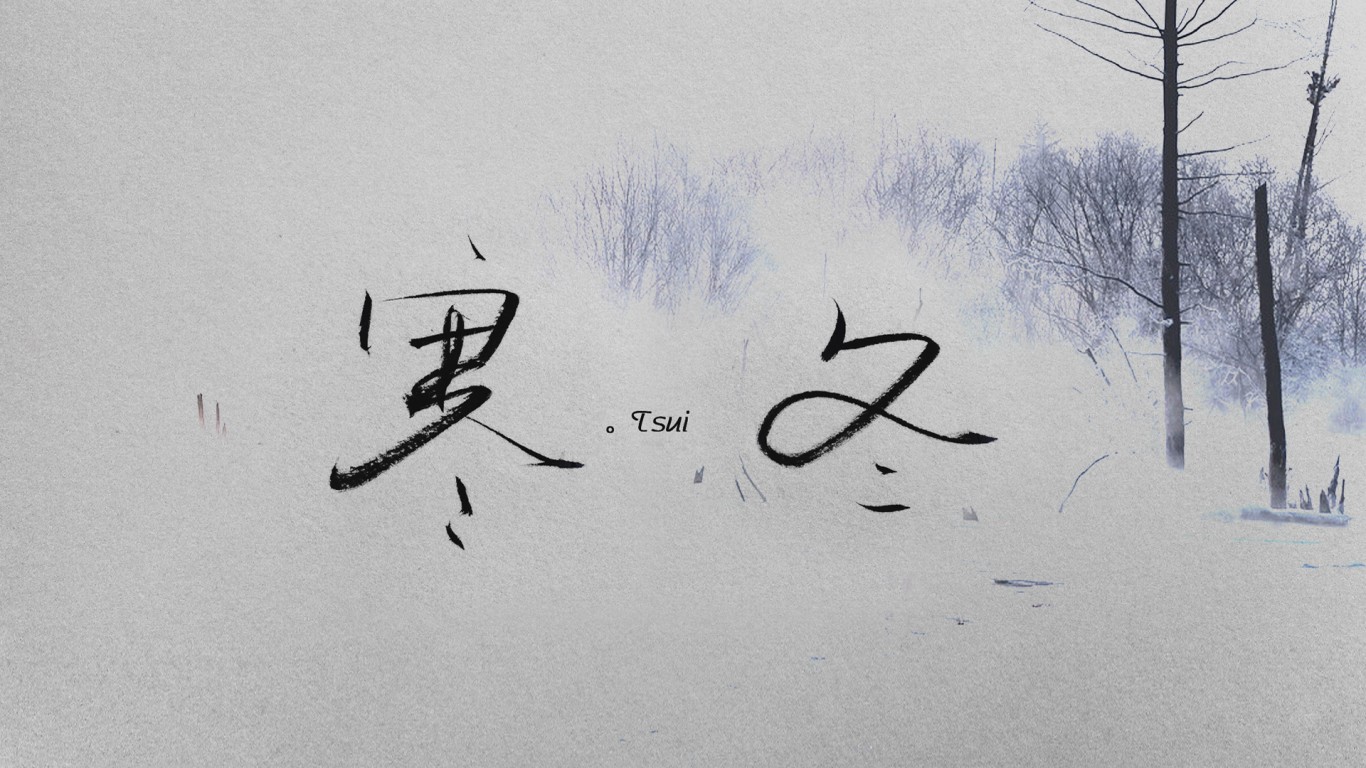 寒 。Tsui 冬